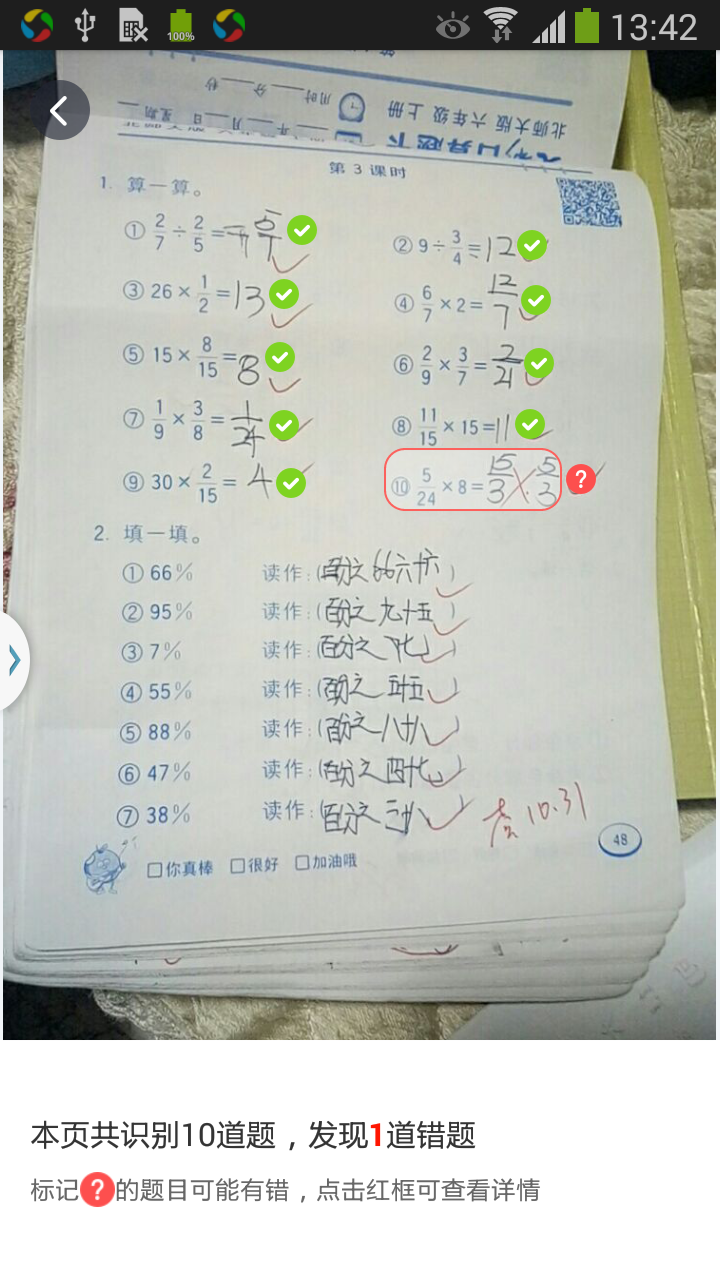 100%
13:42
用时 分 秒
北师大版 六年级 上册
年 月 日 星期
第 3 课时
1. 算一算。
① 2/7 ÷ 2/5 = 5/7
② 9 ÷ 3/4 = 12
③ 26 × 1/2 = 13
④ 6/7 × 2 = 12/7
⑤ 15 × 8/15 = 8
⑥ 2/9 × 3/7 = 2/21
⑦ 1/9 × 3/8 = 1/24
⑧ 11/15 × 15 = 11
⑨ 30 × 2/15 = 4
⑩ 5/24 × 8 = 15/3 5/3 ?
2. 填一填。
① 66% 读作:(百分之66六十六)
② 95% 读作:(百分之九十五)
③ 7% 读作:(百分之七)
④ 55% 读作:(百分之五十五)
⑤ 88% 读作:(百分之八十八)
⑥ 47% 读作:(百分之四十七)
⑦ 38% 读作:(百分之三十八)
10.31
48
□你真棒 □很好 □加油哦
本页共识别10道题，发现1道错题
标记?的题目可能有错，点击红框可查看详情